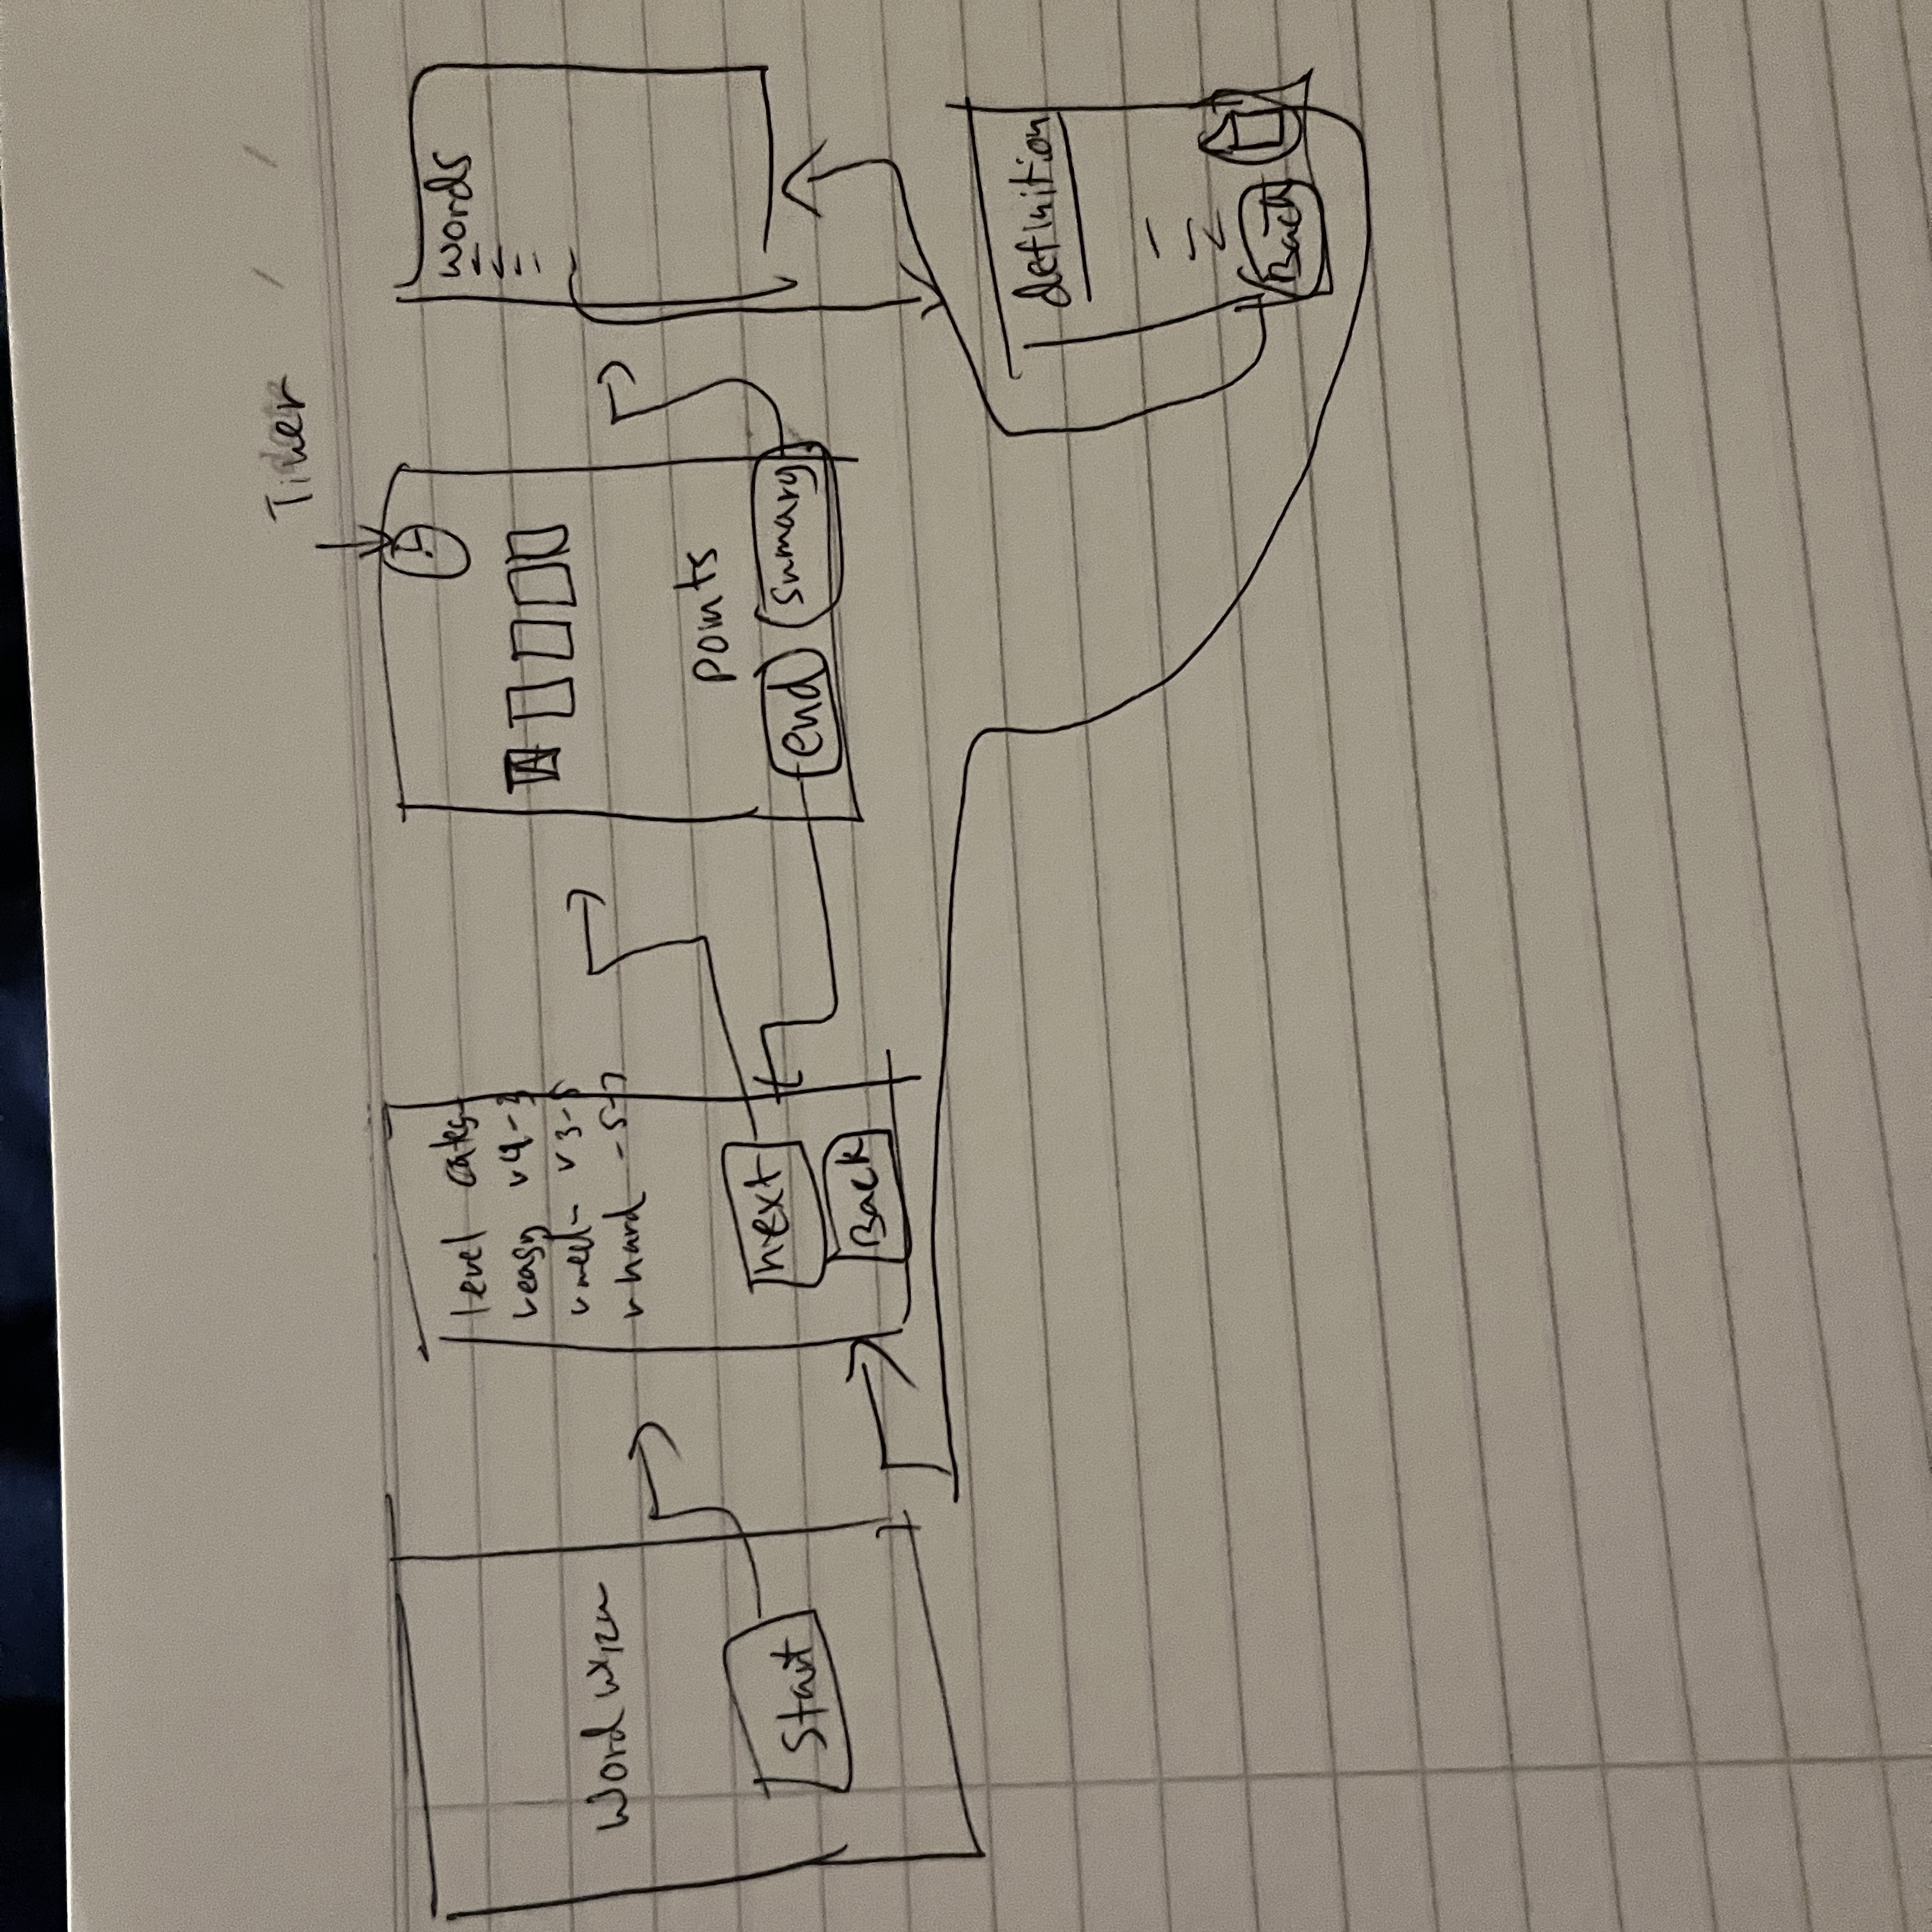 Word Wizu
Start
level
easy
med -
hard - 5-7
v 3-5
next
Back
Timer
A
points
end
Summary
words
definition
Back